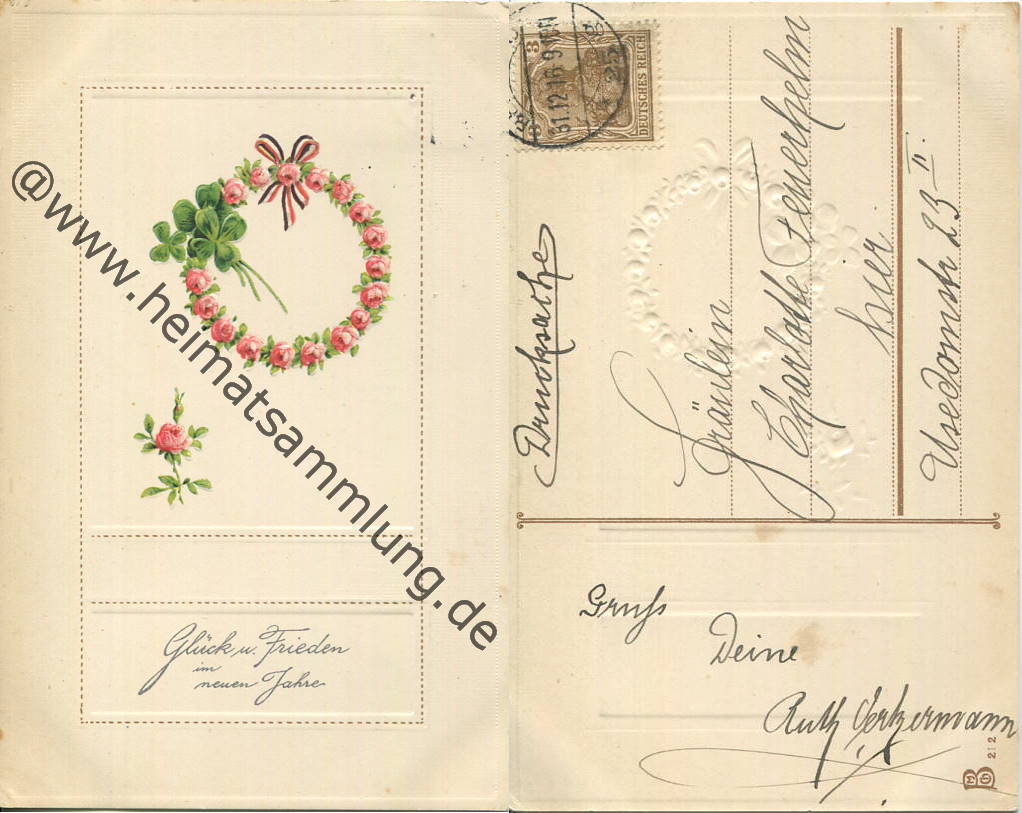 @www.heimatsammlung.de
Glück u. Frieden
im
neuen Jahre
3
DEUTSCHES REICH
31.12.16.9-10N
Drucksache
Fräulein
Charlotte Feuerhelm
hier
Usedomstr 23 II.
Gruss
Deine
Ruth
212